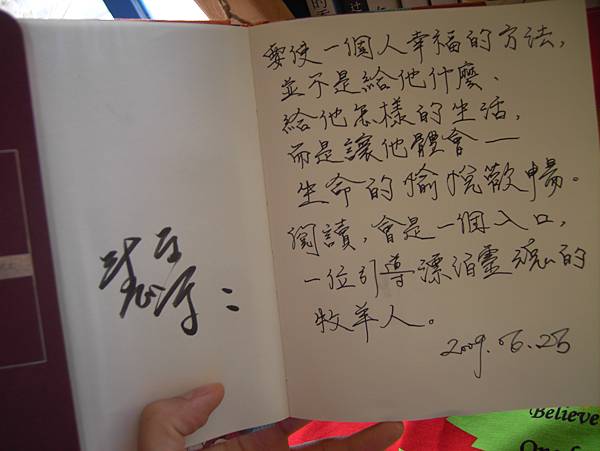 要使一個人幸福的方法,
並不是給他什麼、
給他怎樣的生活,
而是讓他體會—
生命的愉悅歡暢。
閱讀,會是一個入口,
一位引導漂泊靈魂的
牧羊人。
2009.06.25
Believe